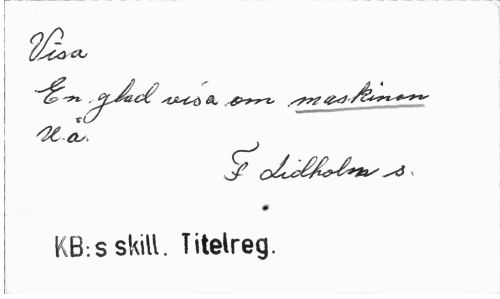 Visa
En glad visa om maskinen
U.å.
F Lidholm s.
KB:s skill. Titelreg.